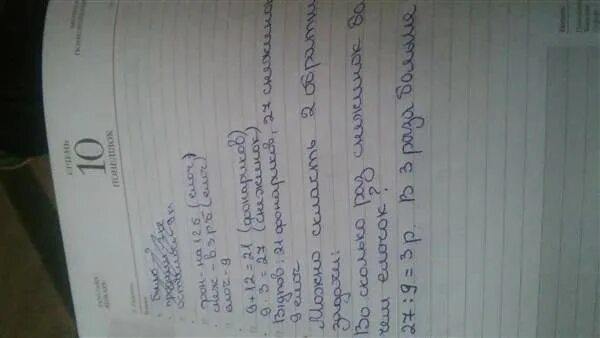 СІЧЕНЬ
10
ПОНЕДІЛОК
фон- на 12 б (елоч)
снеж - в 3 р б (елоч)
елоч- 9
9+12=21 (фонариков)
9·3=27 (снежинок)
Відпов: 21 фонариков, 27 снежинок
9 елоч
Можно скласть 2 обратни
задачи:
Во сколько раз снежинок бо
чем елочок?
27:9=3 р. В 3 раза больше